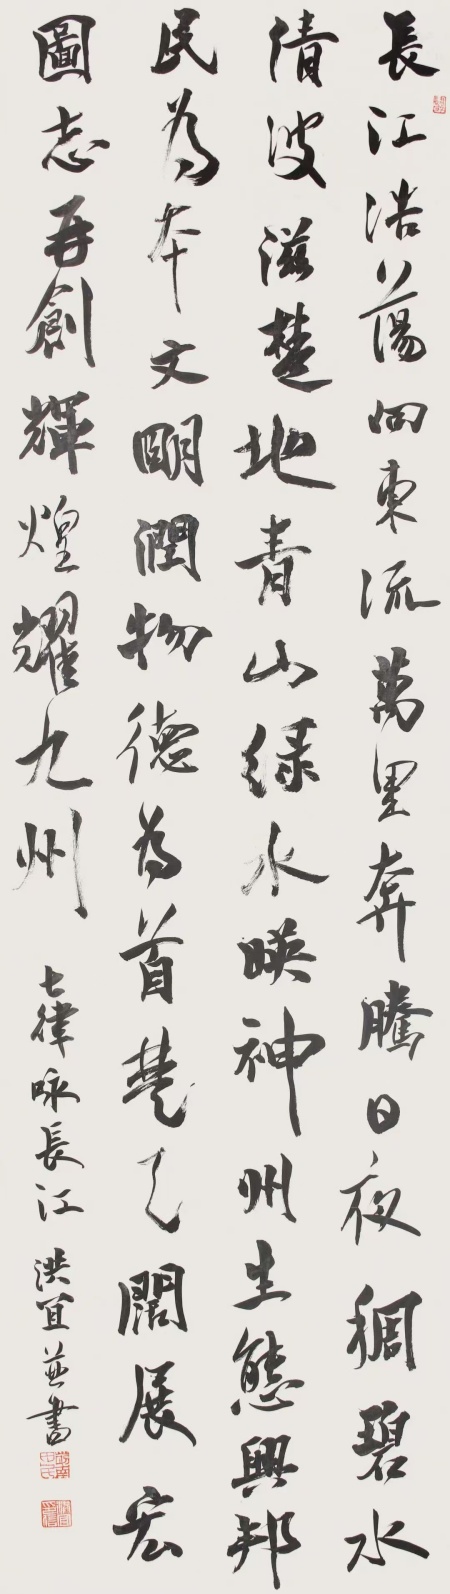 長江浩蕩向東流萬里奔騰日夜稠碧水
清波滋楚地青山绿水映神州生態興邦
民為本文明潤物德為首楚天闊展宏
圖志再創輝煌耀九州
七律咏長江 洪宜並書